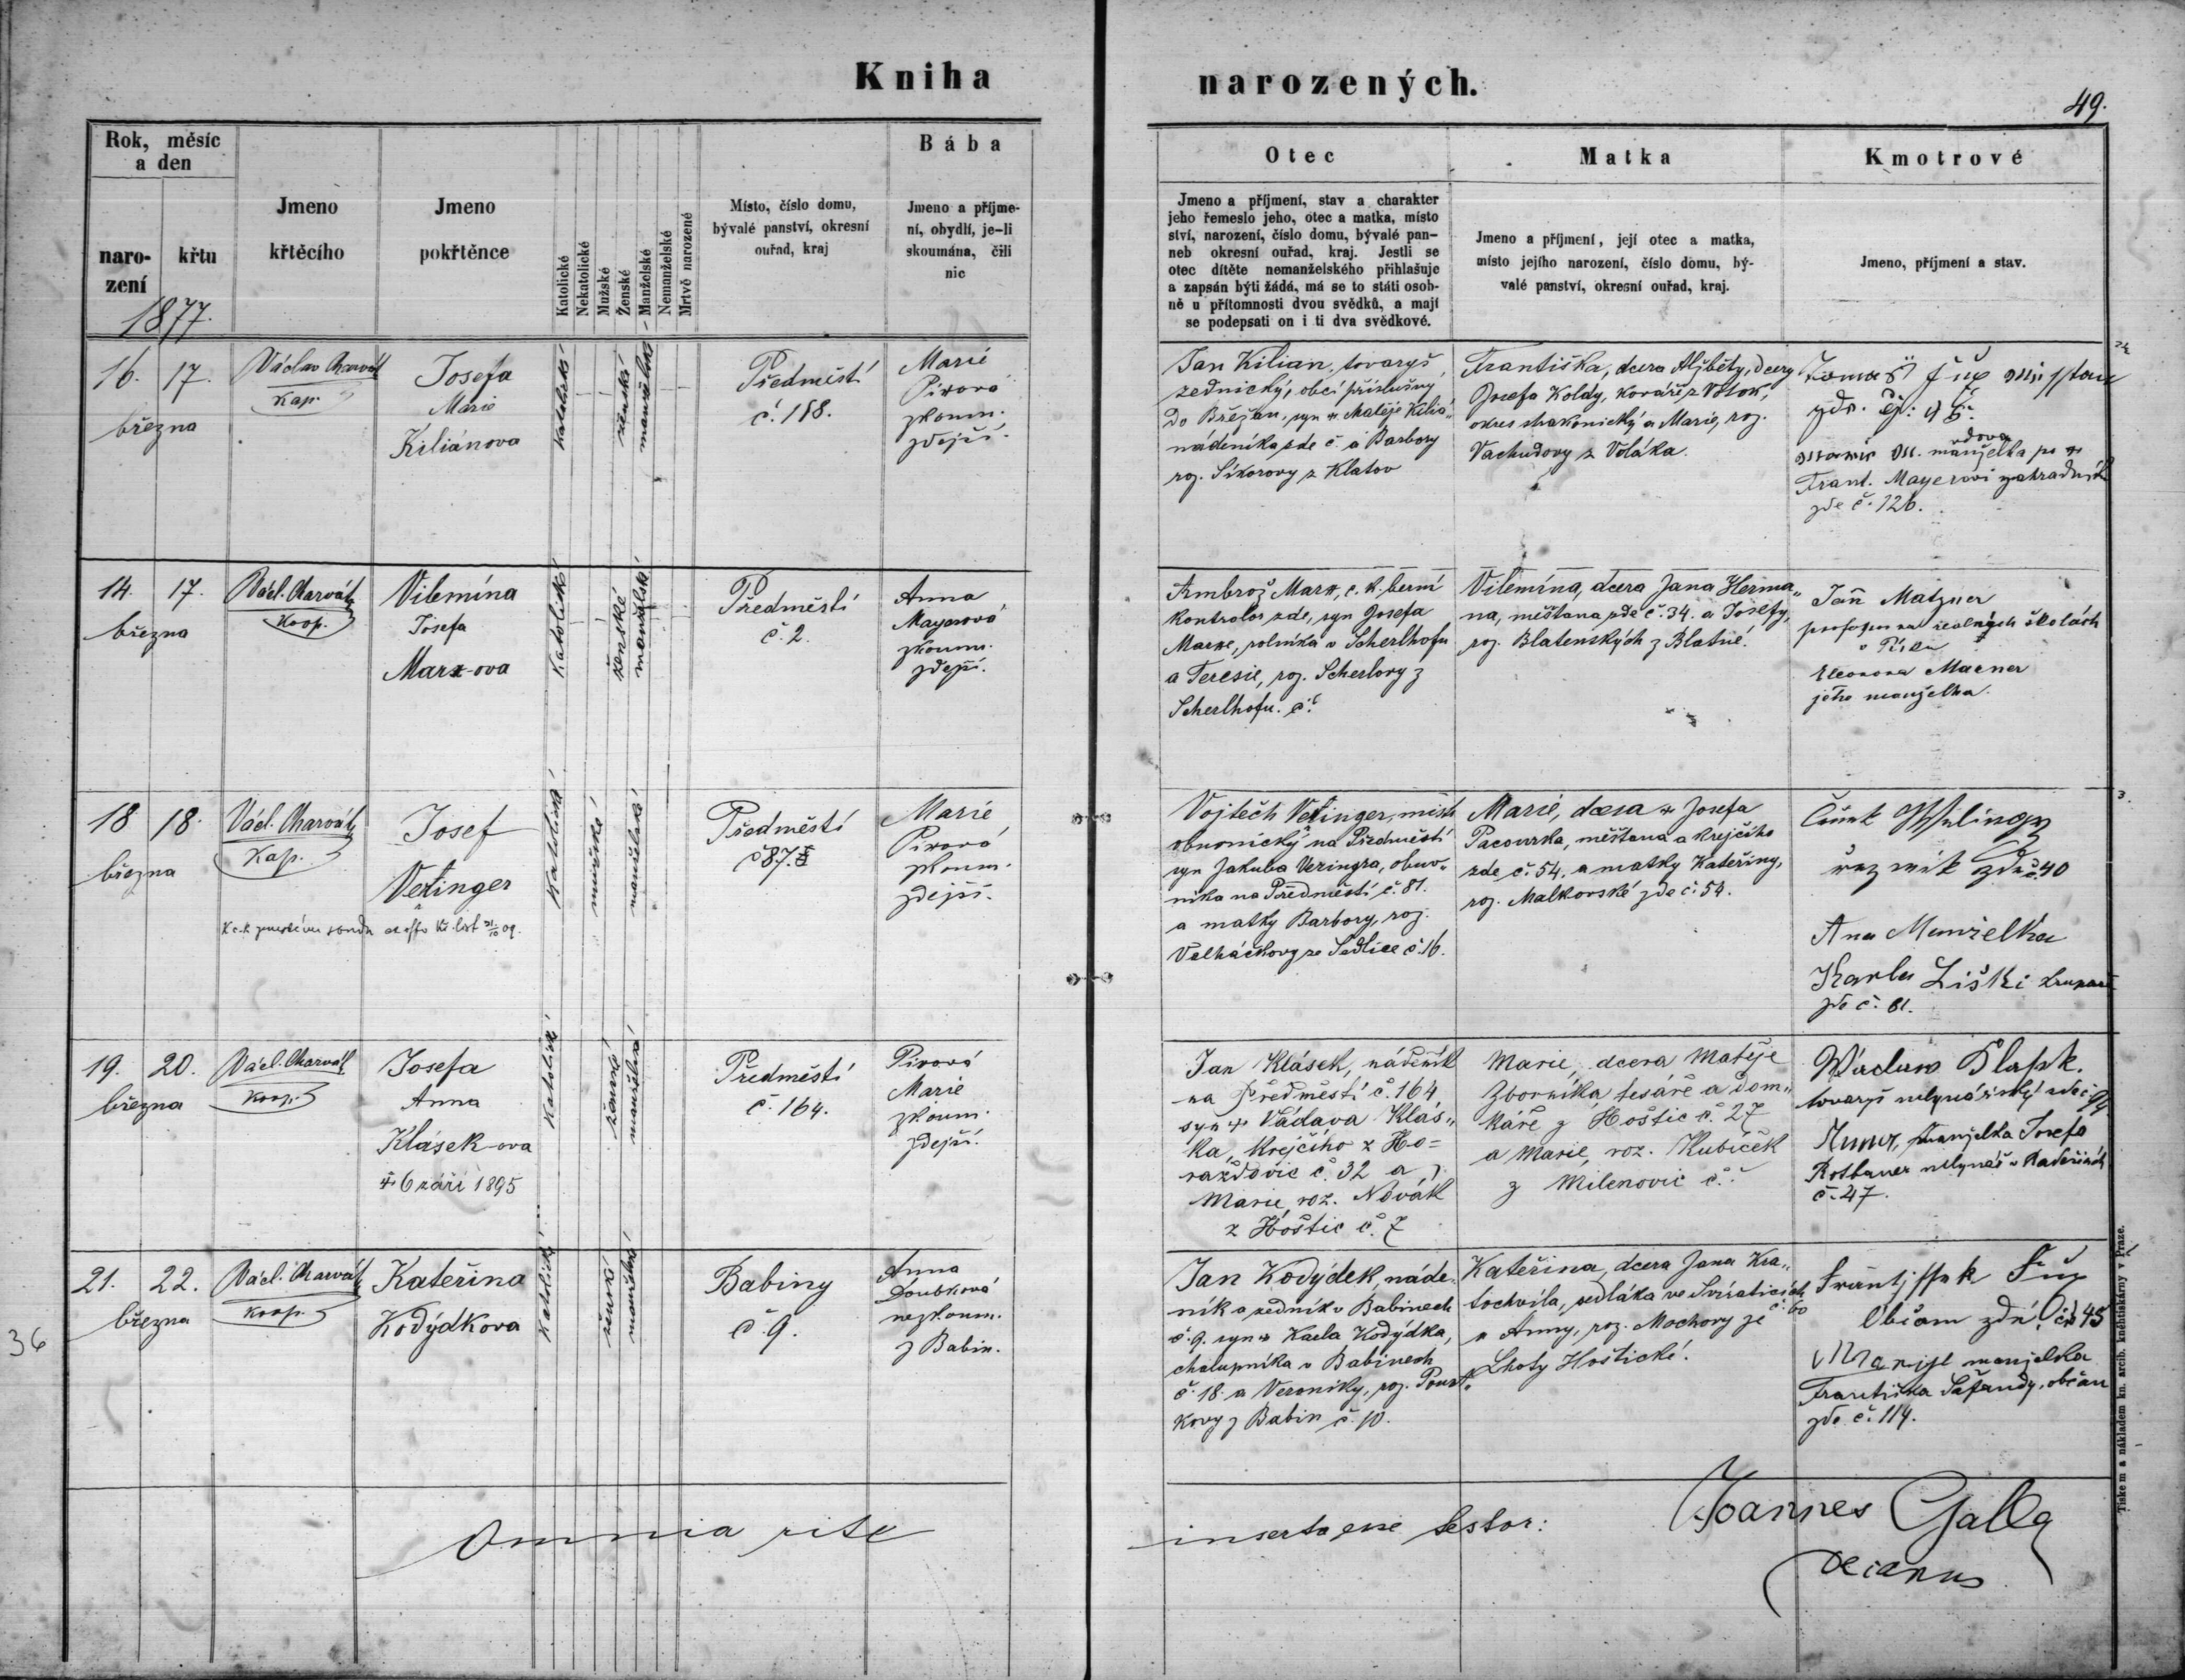 Kniha narozených.
49.
Rok, měsíc
a den
naro-
zení
křtu
1877.
Jmeno
křtěcího
Jmeno
pokřtěnce
Katolické
Nekatolické
Mužské
Ženské
Manželské
Nemanželské
Mrtvě narozené
Místo, číslo domu,
bývalé panství, okresní
ouřad, kraj
Bába
Jmeno a příjme-
ní, obydlí, je-li
skoumána, čili
nic
Otec
Jmeno a příjmení, stav a charakter
jeho řemeslo jeho, otec a matka, místo
ství, narození, číslo domu, bývalé pan-
neb okresní ouřad, kraj. Jestli se
otec dítěte nemanželského přihlašuje
a zapsán býti žádá, má se to státi osob-
ně u přítomnosti dvou svědků, a mají
se podepsati on i ti dva svědkové.
Matka
Jmeno a příjmení, její otec a matka,
místo jejího narození, číslo domu, bý-
valé panství, okresní ouřad, kraj.
Kmotrové
Jmeno, příjmení a stav.
16. 17.
března
Václav Charvát
Kap.
Josefa
Marie
Kiliánova
katolické
ženské
manželské
Předměstí
č. 188.
Marie
Pivová
zkoum.
zdejší.
Jan Kilian, tovaryš
zednický, obcí příslušný
do Břežan, syn Matěje Kiliá
nádeníka zde č. a Barbory
roj. Síkorovy z Klatov
Františka, dcera Alžběty, dcery
Josefa Koldy, kováře z Volok,
okres strakonický a Marie, roj.
Vachudovy z Voláka.
vdova
manželka po
Frant. Mayerovi zahradník
zde č. 126.
14. 17.
března
Václ. Charvát
Koop.
Vilemína
Josefa
Marx-ova
Katolické
ženské
manželské
Předměstí
č. 2.
Anna
Mayerová
zkoum.
zdejší.
Ambrož Marx, c. k. berní
kontrolor zde, syn Josefa
Marxe, rolníka v Scherlhofu
a Teresie, roj. Scherlovy z
Scherlhofu. č.
Vilemína, dcera Jana Herma„
na, měštana zde č. 34. a Josefy,
roj. Blatenských z Blatné.
Jan Matzner
professor na reálných školách
v Písku
Eleonora Macner
jeho manželka.
18 18.
března
Václ. Charvát
Kap.
Josef
Vetinger
Katolické
mužské
manželské
Předměstí
č 87.
Marie
Pivová
zkoum.
zdejší.
Vojtěch Vetinger, mistr
obuvnický na Předměstí
syn Jakuba Vezingra, obuv„
níka na Předměstí č. 81.
a matky Barbory, roj.
Valháčkovy ze Sedlice č. 16.
Marie, dcera Josefa
Pacovska, měštana a krejčího
zde č. 54. a matky Kateřiny,
roj. Malkovské zde č. 54.
řezník zde č 40
Ana Manželka
Karla Liški
zde č. 81.
19. 20.
března
Václ. Charvát
Koop.
Josefa
Anna
Klásek-ova
6 září 1895
Katolické
ženské
manželské
Předměstí
č. 164.
Pivová
Marie
zkoum.
zdejší.
Jan Klásek, nádeník
na Předměstí č. 164
syn Václava Klás„
ka, krejčího z Ho=
raždovic č. 32 a
Marie, roz. Novák
z Hoštic č. 7
Marie, dcera Matěje
Zborníka tesáře a dom„
káře z Hoštic č. 27
a Marie, roz. Kubíček
z Milenovic č.
Václaw
tovaryš mlynářský zde č
Anna, manželka Josefa
Rotbauer mlynář
č. 47.
21. 22.
března
Václ. Charvát
Koop.
Kateřina
Kodýdkova
Katolické
ženské
manželské
Babiny
č 9.
Anna
Doubková
nezkoum.
z Babin.
Jan Kodýdek, náde
ník a zedník v Babinech
č. 9. syn Karla Kodýdka,
chalupníka v Babinech
č. 18. a Veroniky, roj.
kovy z Babin č. 10.
Kateřina, dcera Jana Kra„
tochvíla, sedláka ve Sviraticích
č. 60
a Anny, roj. Mochovy ze
Lhoty Hoštické.
Občan zdní 45
manželka
Františka Šafandy, občan
zde č. 114.
36
Omnia rite inserta esse testor:
Joannes Galla
decanus
Tiskem a nákladem kn. arcib. kněhtiskárny v Praze.